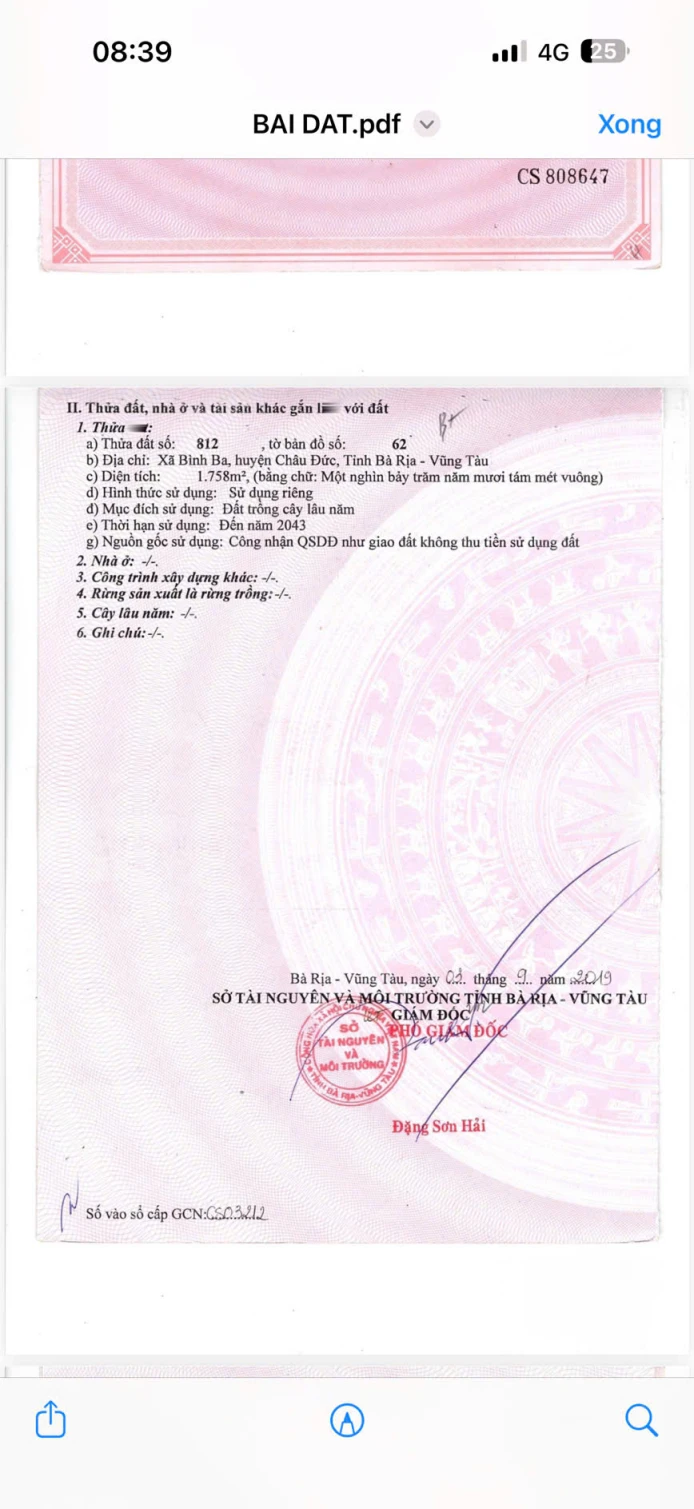 08:39
4G 25
BAI DAT.pdf
Xong
CS 808647
II. Thửa đất, nhà ở và tài sản khác gắn với đất
1. Thửa :
a) Thửa đất số: 812 , tờ bản đồ số: 62
b) Địa chỉ: Xã Bình Ba, huyện Châu Đức, Tỉnh Bà Rịa - Vũng Tàu
c) Diện tích: 1.758m², (bằng chữ: Một nghìn bảy trăm năm mươi tám mét vuông)
d) Hình thức sử dụng: Sử dụng riêng
đ) Mục đích sử dụng: Đất trồng cây lâu năm
e) Thời hạn sử dụng: Đến năm 2043
g) Nguồn gốc sử dụng: Công nhận QSDĐ như giao đất không thu tiền sử dụng đất
2. Nhà ở: -/-.
3. Công trình xây dựng khác: -/-.
4. Rừng sản xuất là rừng trồng: -/-.
5. Cây lâu năm: -/-.
6. Ghi chú: -/-.
Bà Rịa - Vũng Tàu, ngày 03 tháng 9 năm 2019
SỞ TÀI NGUYÊN VÀ MÔI TRƯỜNG TỈNH BÀ RỊA - VŨNG TÀU
GIÁM ĐỐC
PHÓ GIÁM ĐỐC
SỞ
TÀI NGUYÊN
VÀ
MÔI TRƯỜNG
TỈNH BÀ RỊA-VŨNG TÀU
Đặng Sơn Hải
Số vào sổ cấp GCN: CS03212